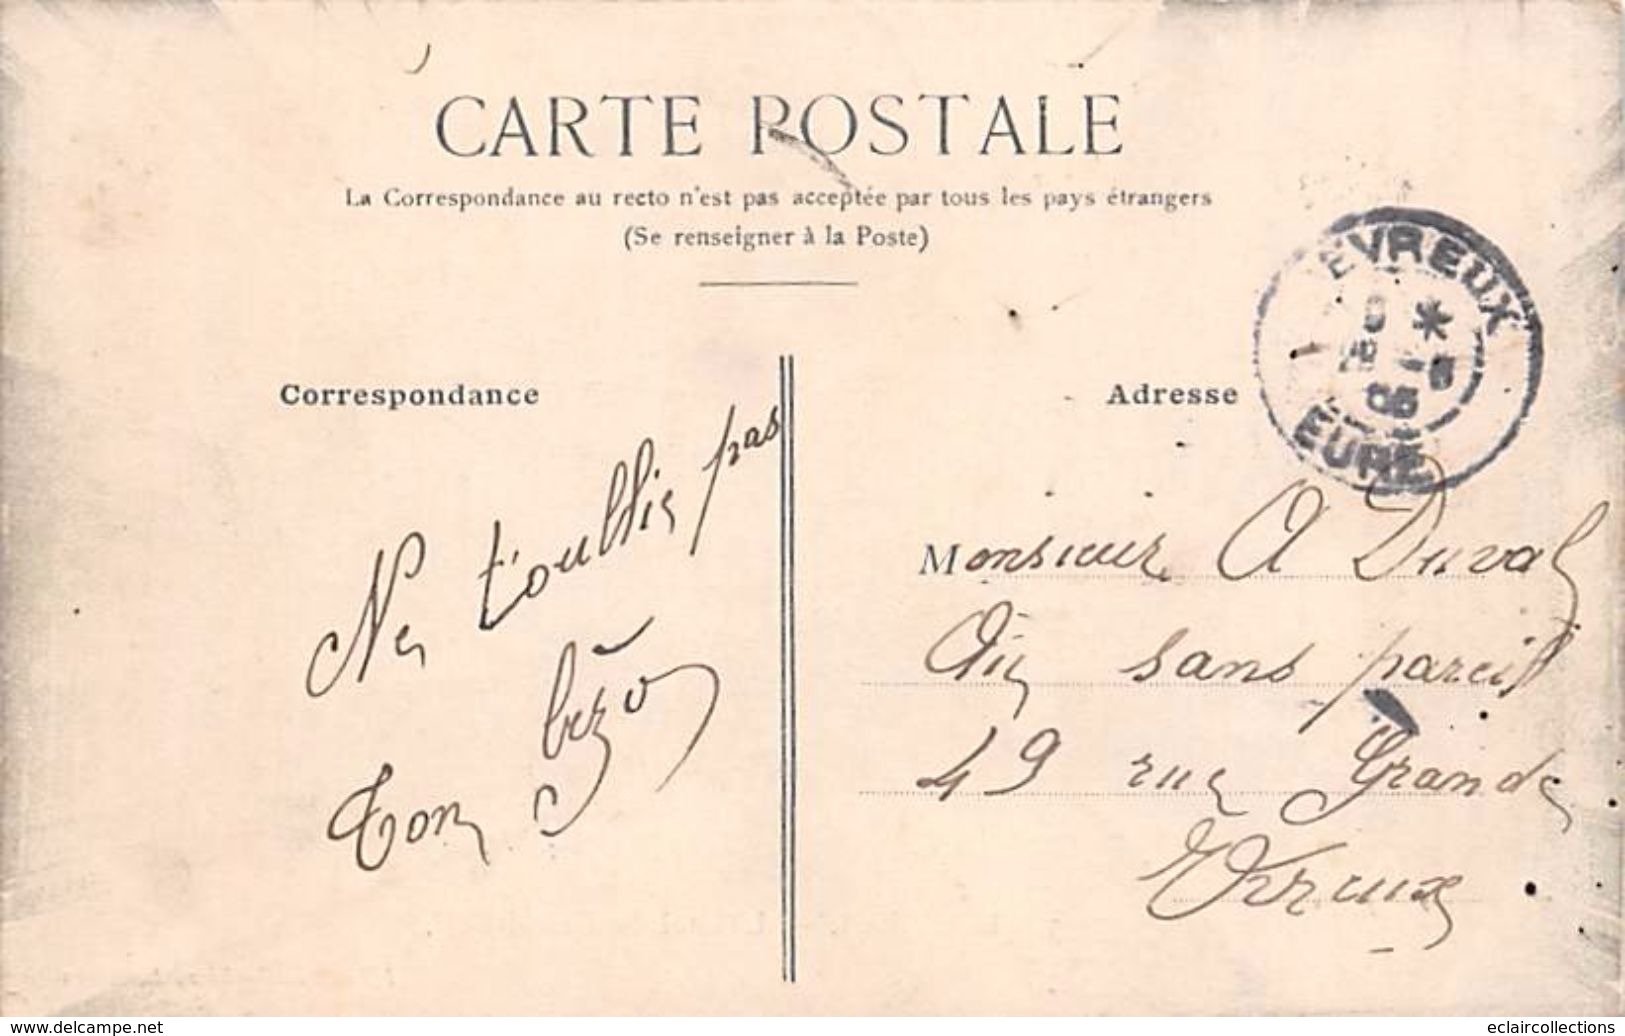 CARTE POSTALE
La Correspondance au recto n'est pas acceptée par tous les pays étrangers
(Se renseigner à la Poste)
Correspondance
Ne t'oublie pas
Ton bézo
Adresse
EVREUX
EURE
Monsieur A Duval
Au sans pareil
49 rue Grande
Evreux
www.delcampe.net
eclaircollections